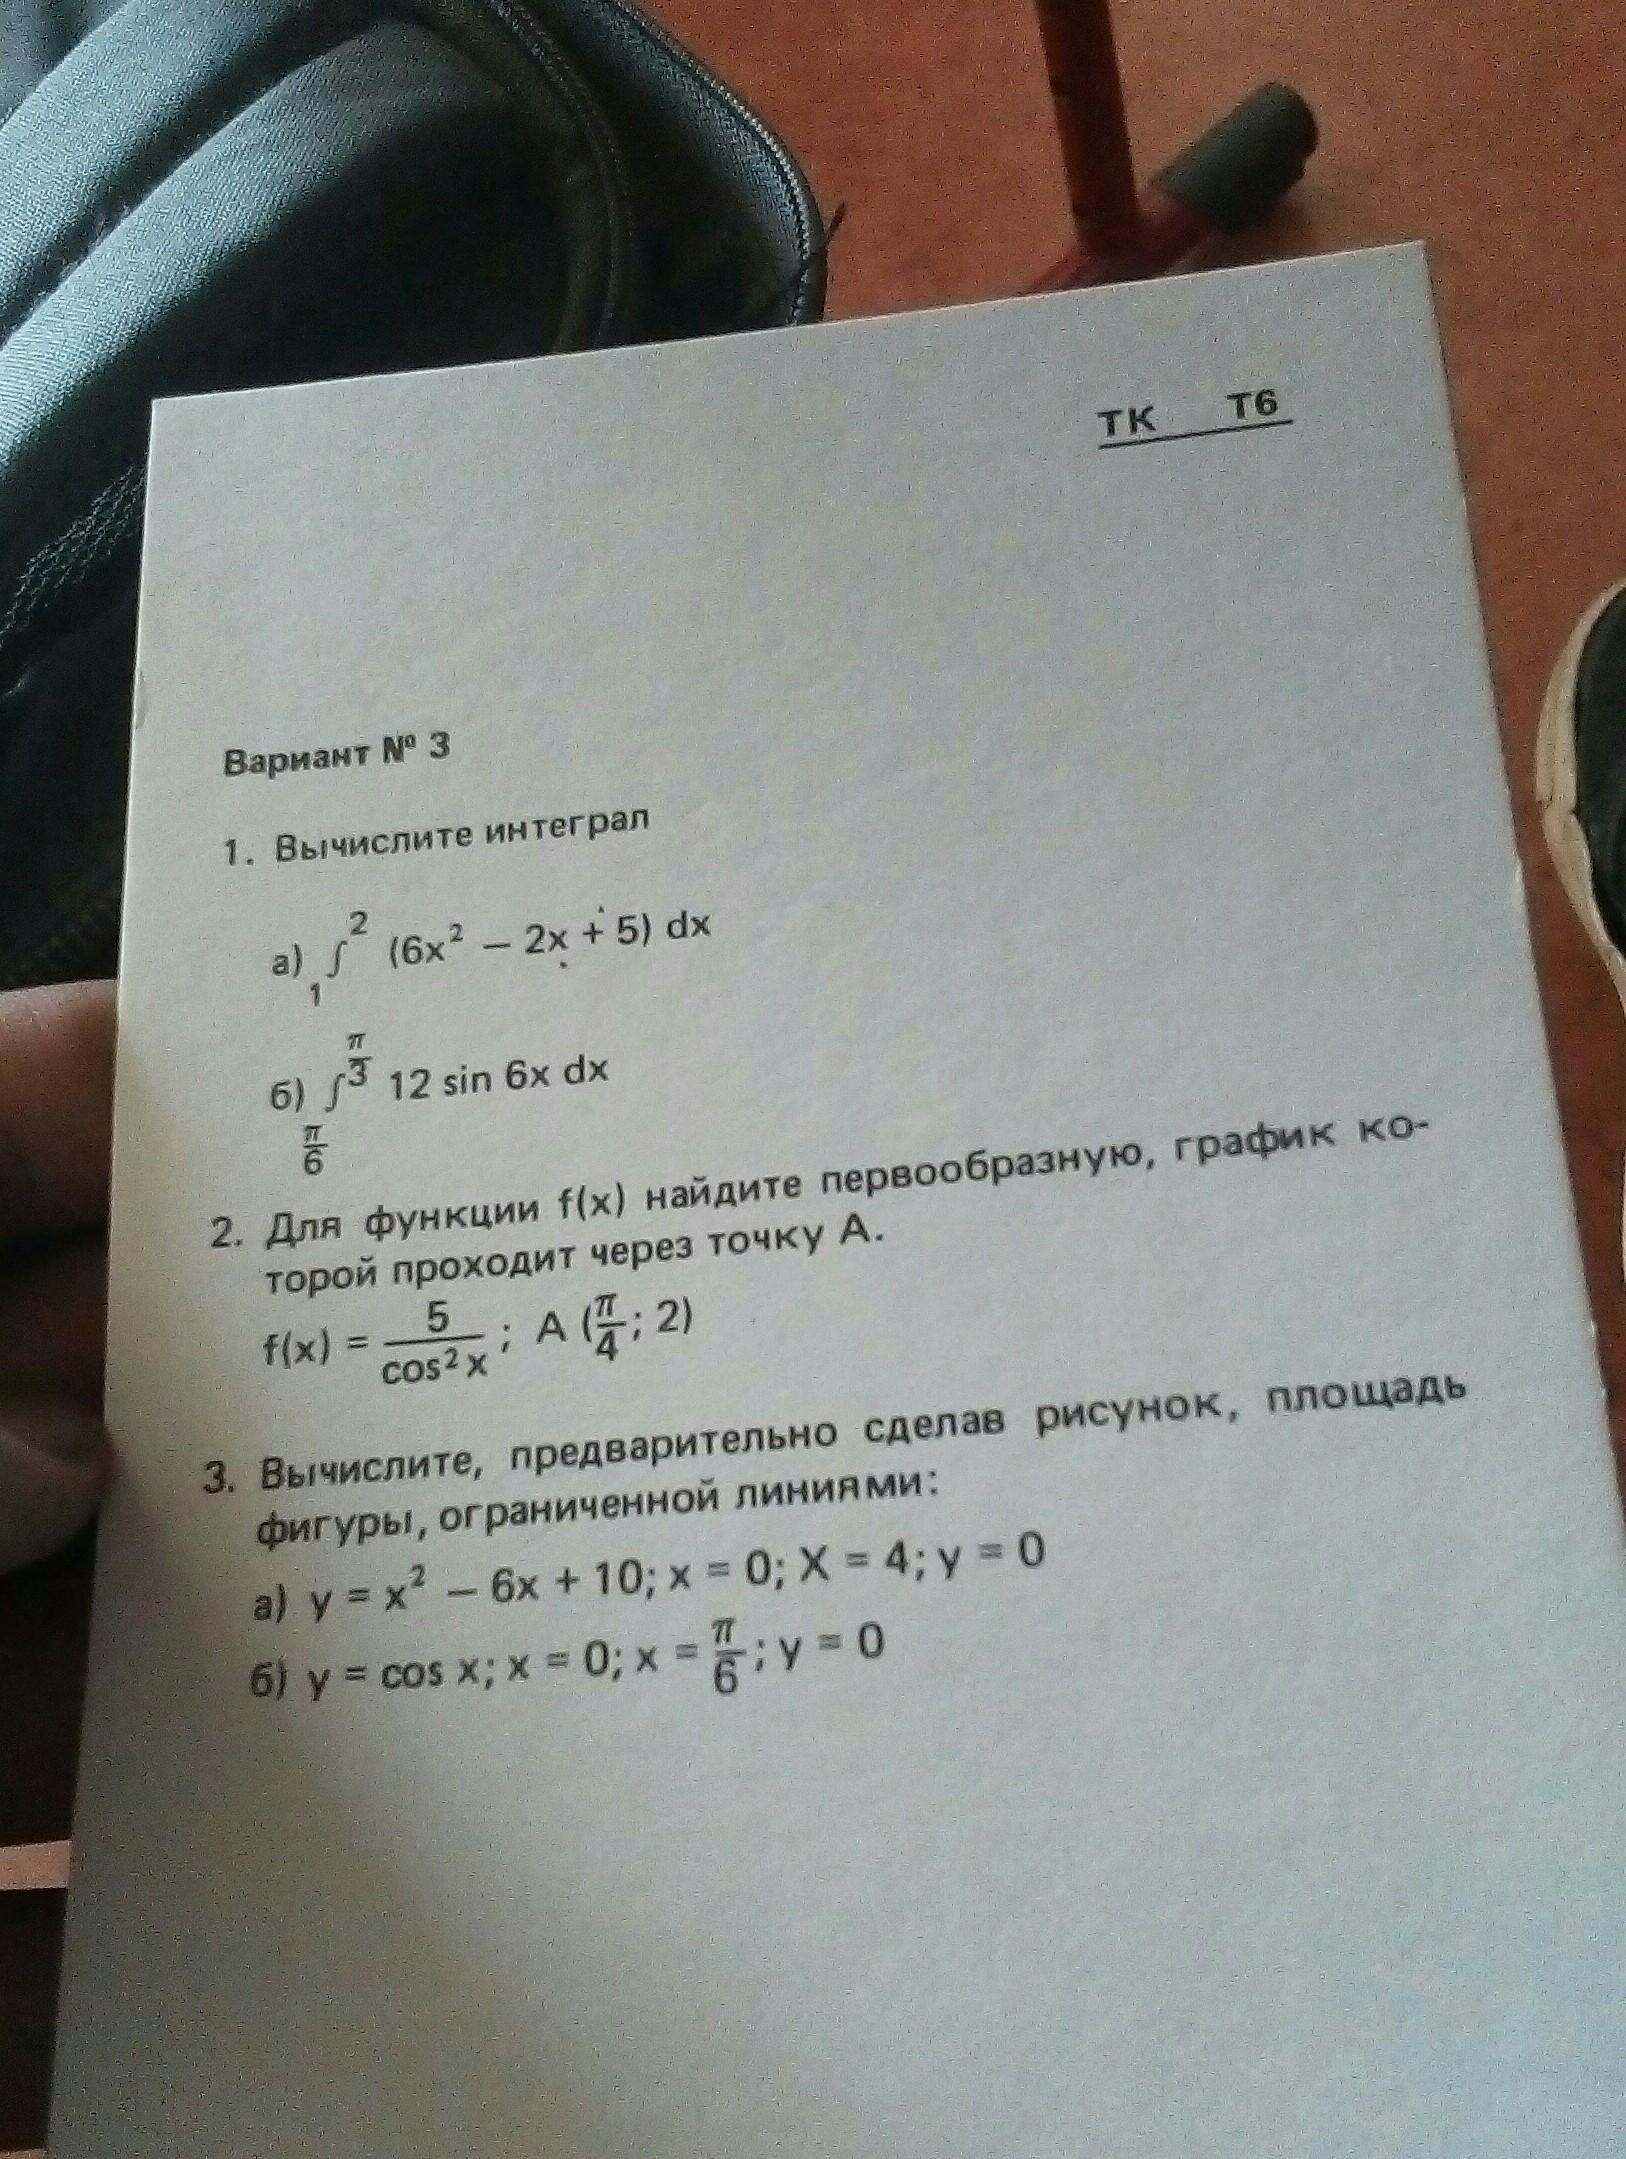 ТК Т6
Вариант № 3
1. Вычислите интеграл
а) ∫₁² (6x² – 2x + 5) dx
б) ∫ π/6 π/3 12 sin 6x dx
2. Для функции f(x) найдите первообразную, график ко-
торой проходит через точку А.
f(x) = 5/cos² x ; А (π/4; 2)
3. Вычислите, предварительно сделав рисунок, площадь
фигуры, ограниченной линиями:
а) y = x² – 6x + 10; x = 0; X = 4; y = 0
б) y = cos x; x = 0; x = π/6; y = 0